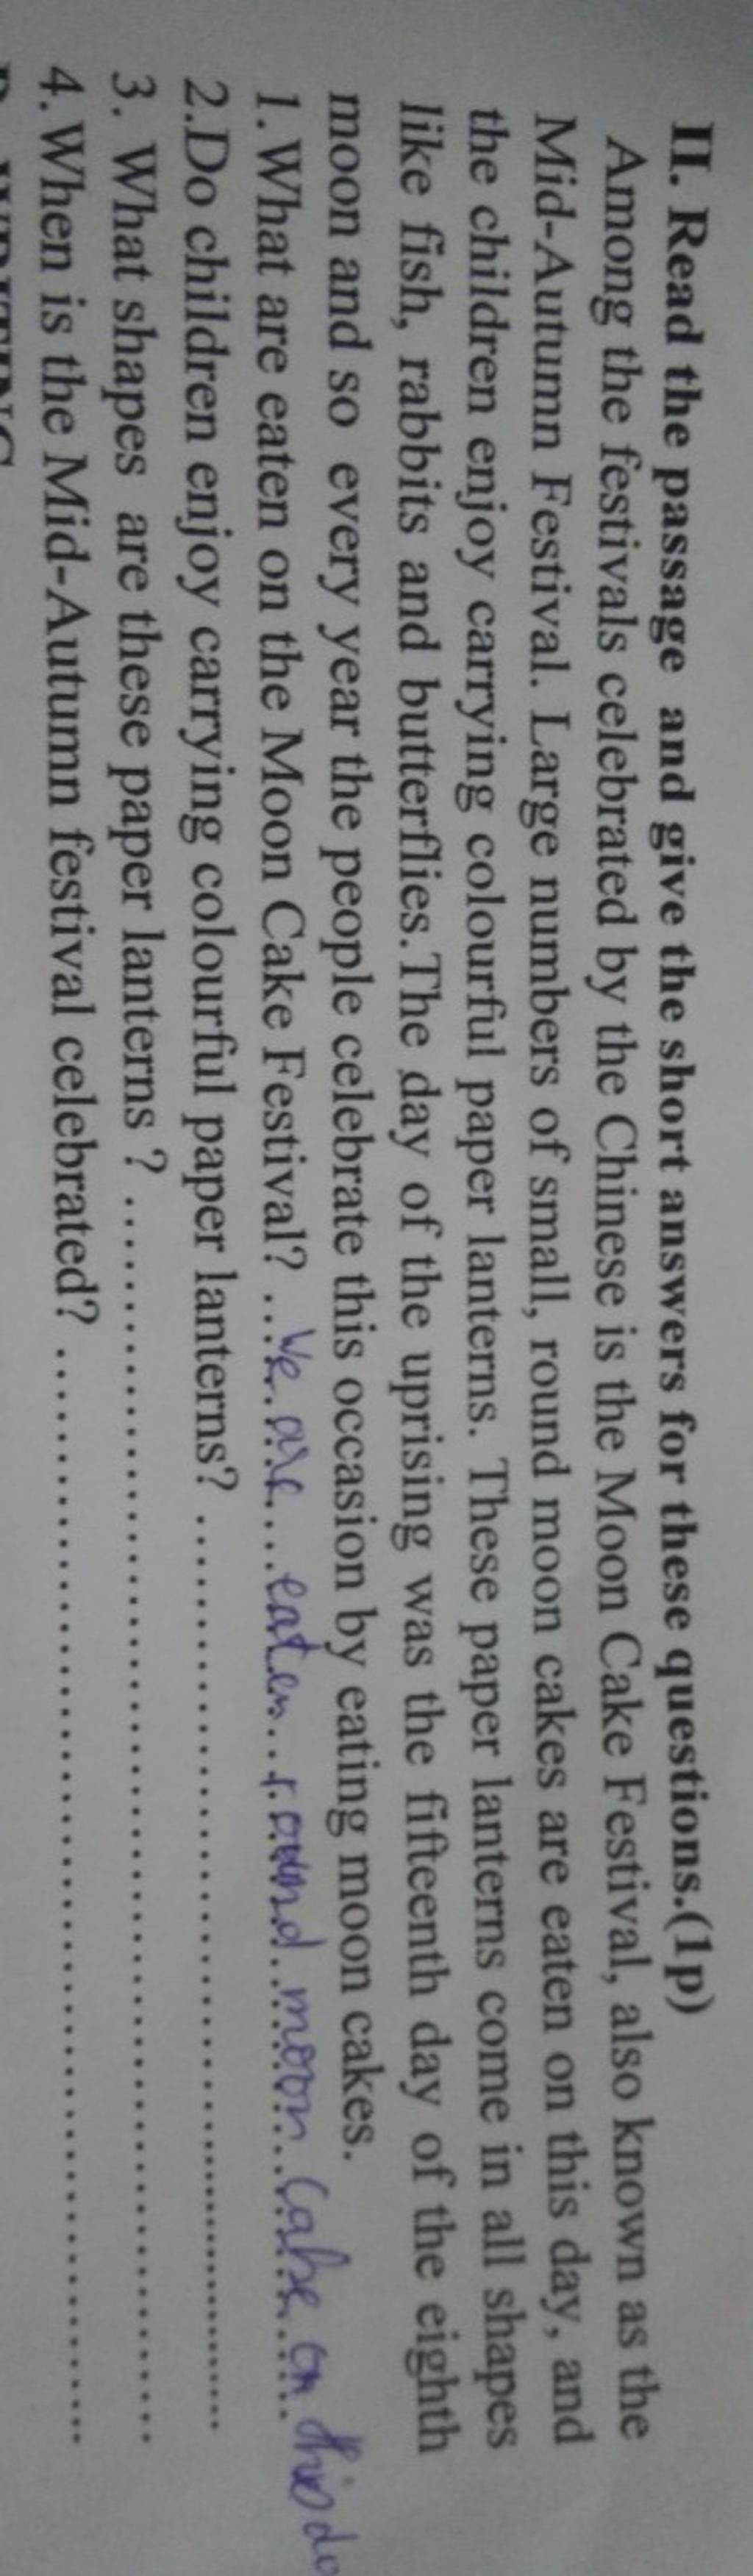 II. Read the passage and give the short answers for these questions.(1p)
Among the festivals celebrated by the Chinese is the Moon Cake Festival, also known as the
Mid-Autumn Festival. Large numbers of small, round moon cakes are eaten on this day, and
the children enjoy carrying colourful paper lanterns. These paper lanterns come in all shapes
like fish, rabbits and butterflies.The day of the uprising was the fifteenth day of the eighth
moon and so every year the people celebrate this occasion by eating moon cakes.
1.What are eaten on the Moon Cake Festival? We are eaten round moon cake on this
2.Do children enjoy carrying colourful paper lanterns? ................................
3. What shapes are these paper lanterns ? ................................
4.When is the Mid-Autumn festival celebrated? ................................